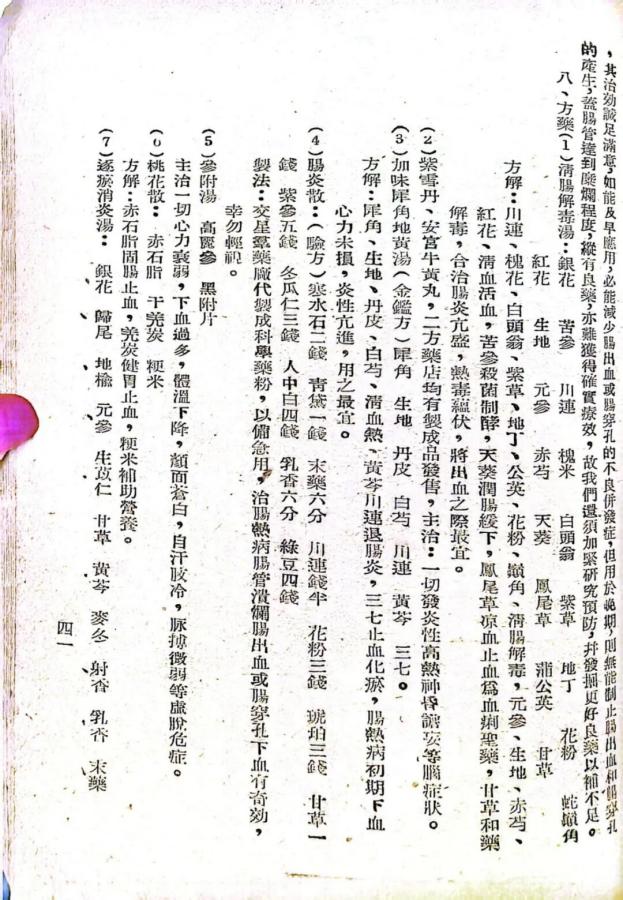 ，其治効誠足滿意，如能及早應用，必能減少腸出血或腸穿孔的不良併發症，但用於晚期，則無能制止腸出血和腸穿孔
的產生，蓋腸管達到糜爛程度，縱有良藥，亦難獲得確實療效，故我們還須加緊研究預防，并發掘更好良藥以補不足。
八、方藥(1)淸腸解毒湯：銀花　苦參　川連　槐米　白頭翁　紫草　地丁　花粉　蛇顱角
紅花　生地　元參　赤芍　天葵　鳳尾草　蒲公英　甘草
方解：川連、槐花、白頭翁、紫草、地丁、公英、花粉、顱角、淸腸解毒，元參、生地、赤芍、
紅花、淸血活血，苦參殺菌制酵，天葵潤腸緩下，鳳尾草凉血止血爲血痢聖藥，甘草和藥
解毒，合治腸炎亢盛，熱毒蘊伏，將出血之際最宜。
(2)紫雪丹、安宮牛黃丸，二方藥店均有製成品發售，主治：一切發炎性高熱神昏譫妄等腦症狀。
(3)加味犀角地黃湯(金鑑方)犀角　生地　丹皮　白芍　川連　黃芩　三七。
方解：犀角、生地、丹皮、白芍、淸血熱、黃芩川連退腸炎，三七止血化淤，腸熱病初期下血
心力未損，炎性亢進，用之最宜。
(4)腸炎散：(驗方)寒水石二錢　靑黛一錢　末藥六分　川連錢半　花粉三錢　琥珀三錢　甘草一
錢　紫參五錢　冬瓜仁三錢　人中白四錢　乳香六分　綠豆四錢
製法：交星羣藥廠代製成科學藥粉，以備急用，治腸熱病腸管潰爛腸出血或腸穿孔下血有奇効，
幸勿輕視。
(5)參附湯　高麗參　黑附片
主治一切心力衰弱，下血過多，體溫下降，顏面蒼白，自汗肢冷，脉搏微弱等虛脫危症。
(6)桃花散：　赤石脂　干羌炭　粳米
方解：赤石脂固腸止血，羌炭健胃止血，粳米補助營養。
(7)逐瘀消炎湯：　銀花　歸尾　地楡　元參　生苡仁　甘草　黃芩　麥冬　射香　乳香　末藥
四一